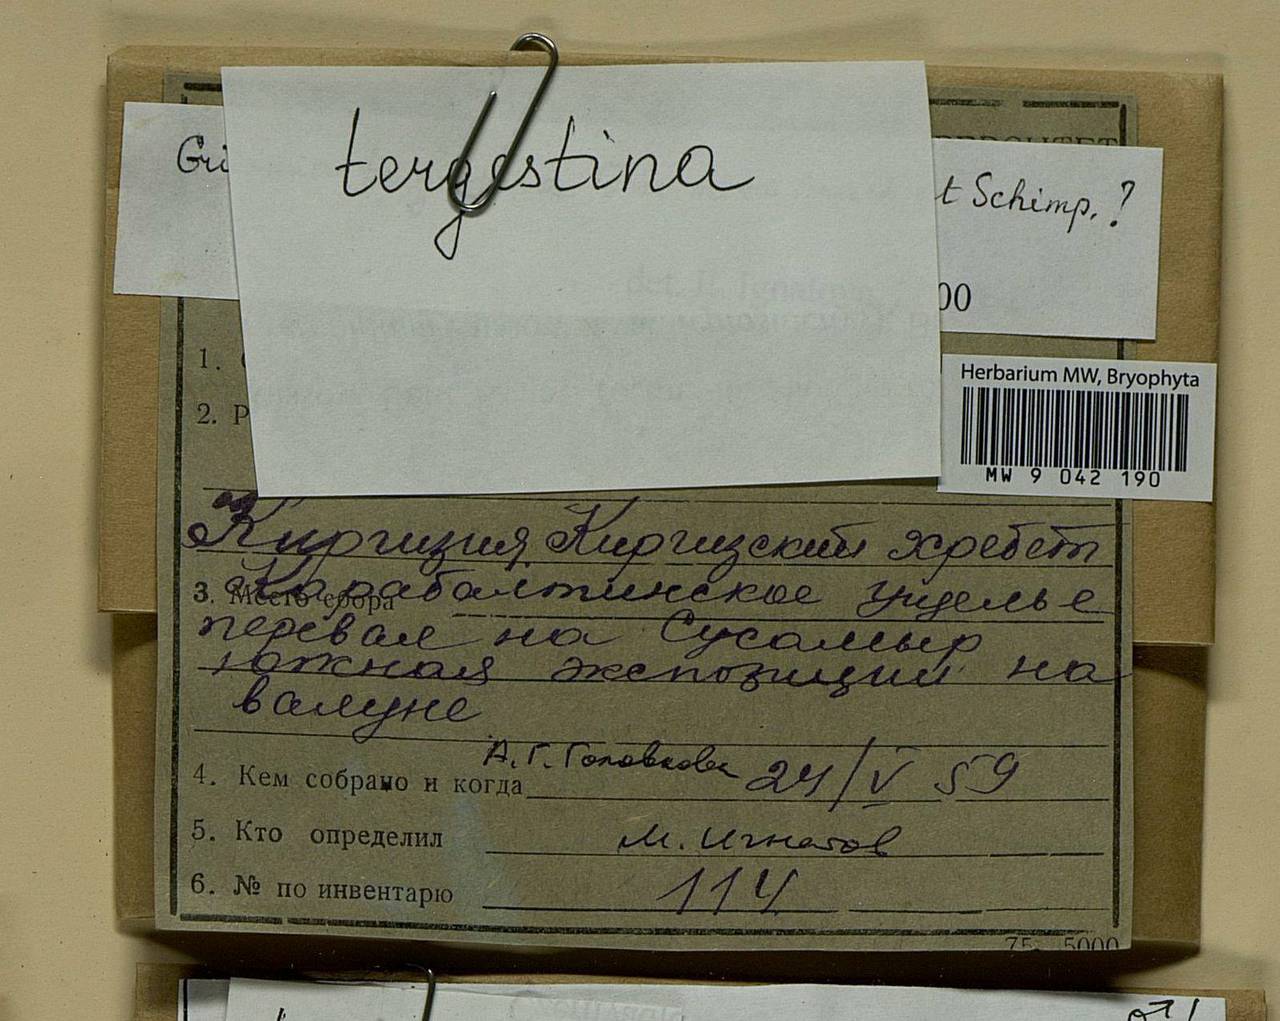 tergestina
Gri
t Schimp. ?
00
Herbarium MW, Bryophyta
MW 9 042 190
1.
2. Р
Киргизия Киргизский хребет
3. Место сбора Карабалтинское ущелье
перевал на Сусамыр
южная экспозиции на
валуне
4. Кем собрано и когда А. Г. Головкова 24/V 59
5. Кто определил М. Игнатов
6. № по инвентарю 114
75 5000